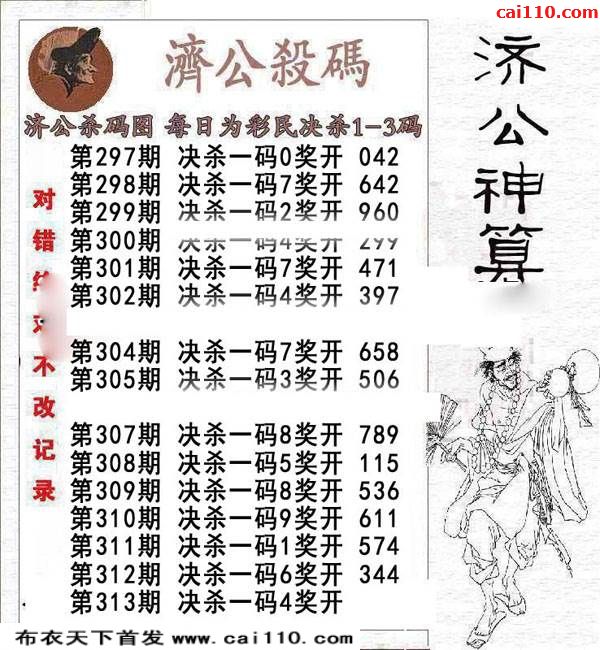 cai110.com
濟公殺碼
济公神算
济公杀码图 每日为彩民决杀1-3码
对错 不改记录
第297期 决杀一码0奖开 042
第298期 决杀一码7奖开 642
第299期 决杀一码2奖开 960
第300期 决杀一码4奖开 299
第301期 决杀一码7奖开 471
第302期 决杀一码4奖开 397
第304期 决杀一码7奖开 658
第305期 决杀一码3奖开 506
第307期 决杀一码8奖开 789
第308期 决杀一码5奖开 115
第309期 决杀一码8奖开 536
第310期 决杀一码9奖开 611
第311期 决杀一码1奖开 574
第312期 决杀一码6奖开 344
第313期 决杀一码4奖开
布衣天下首发 www.cai110.com